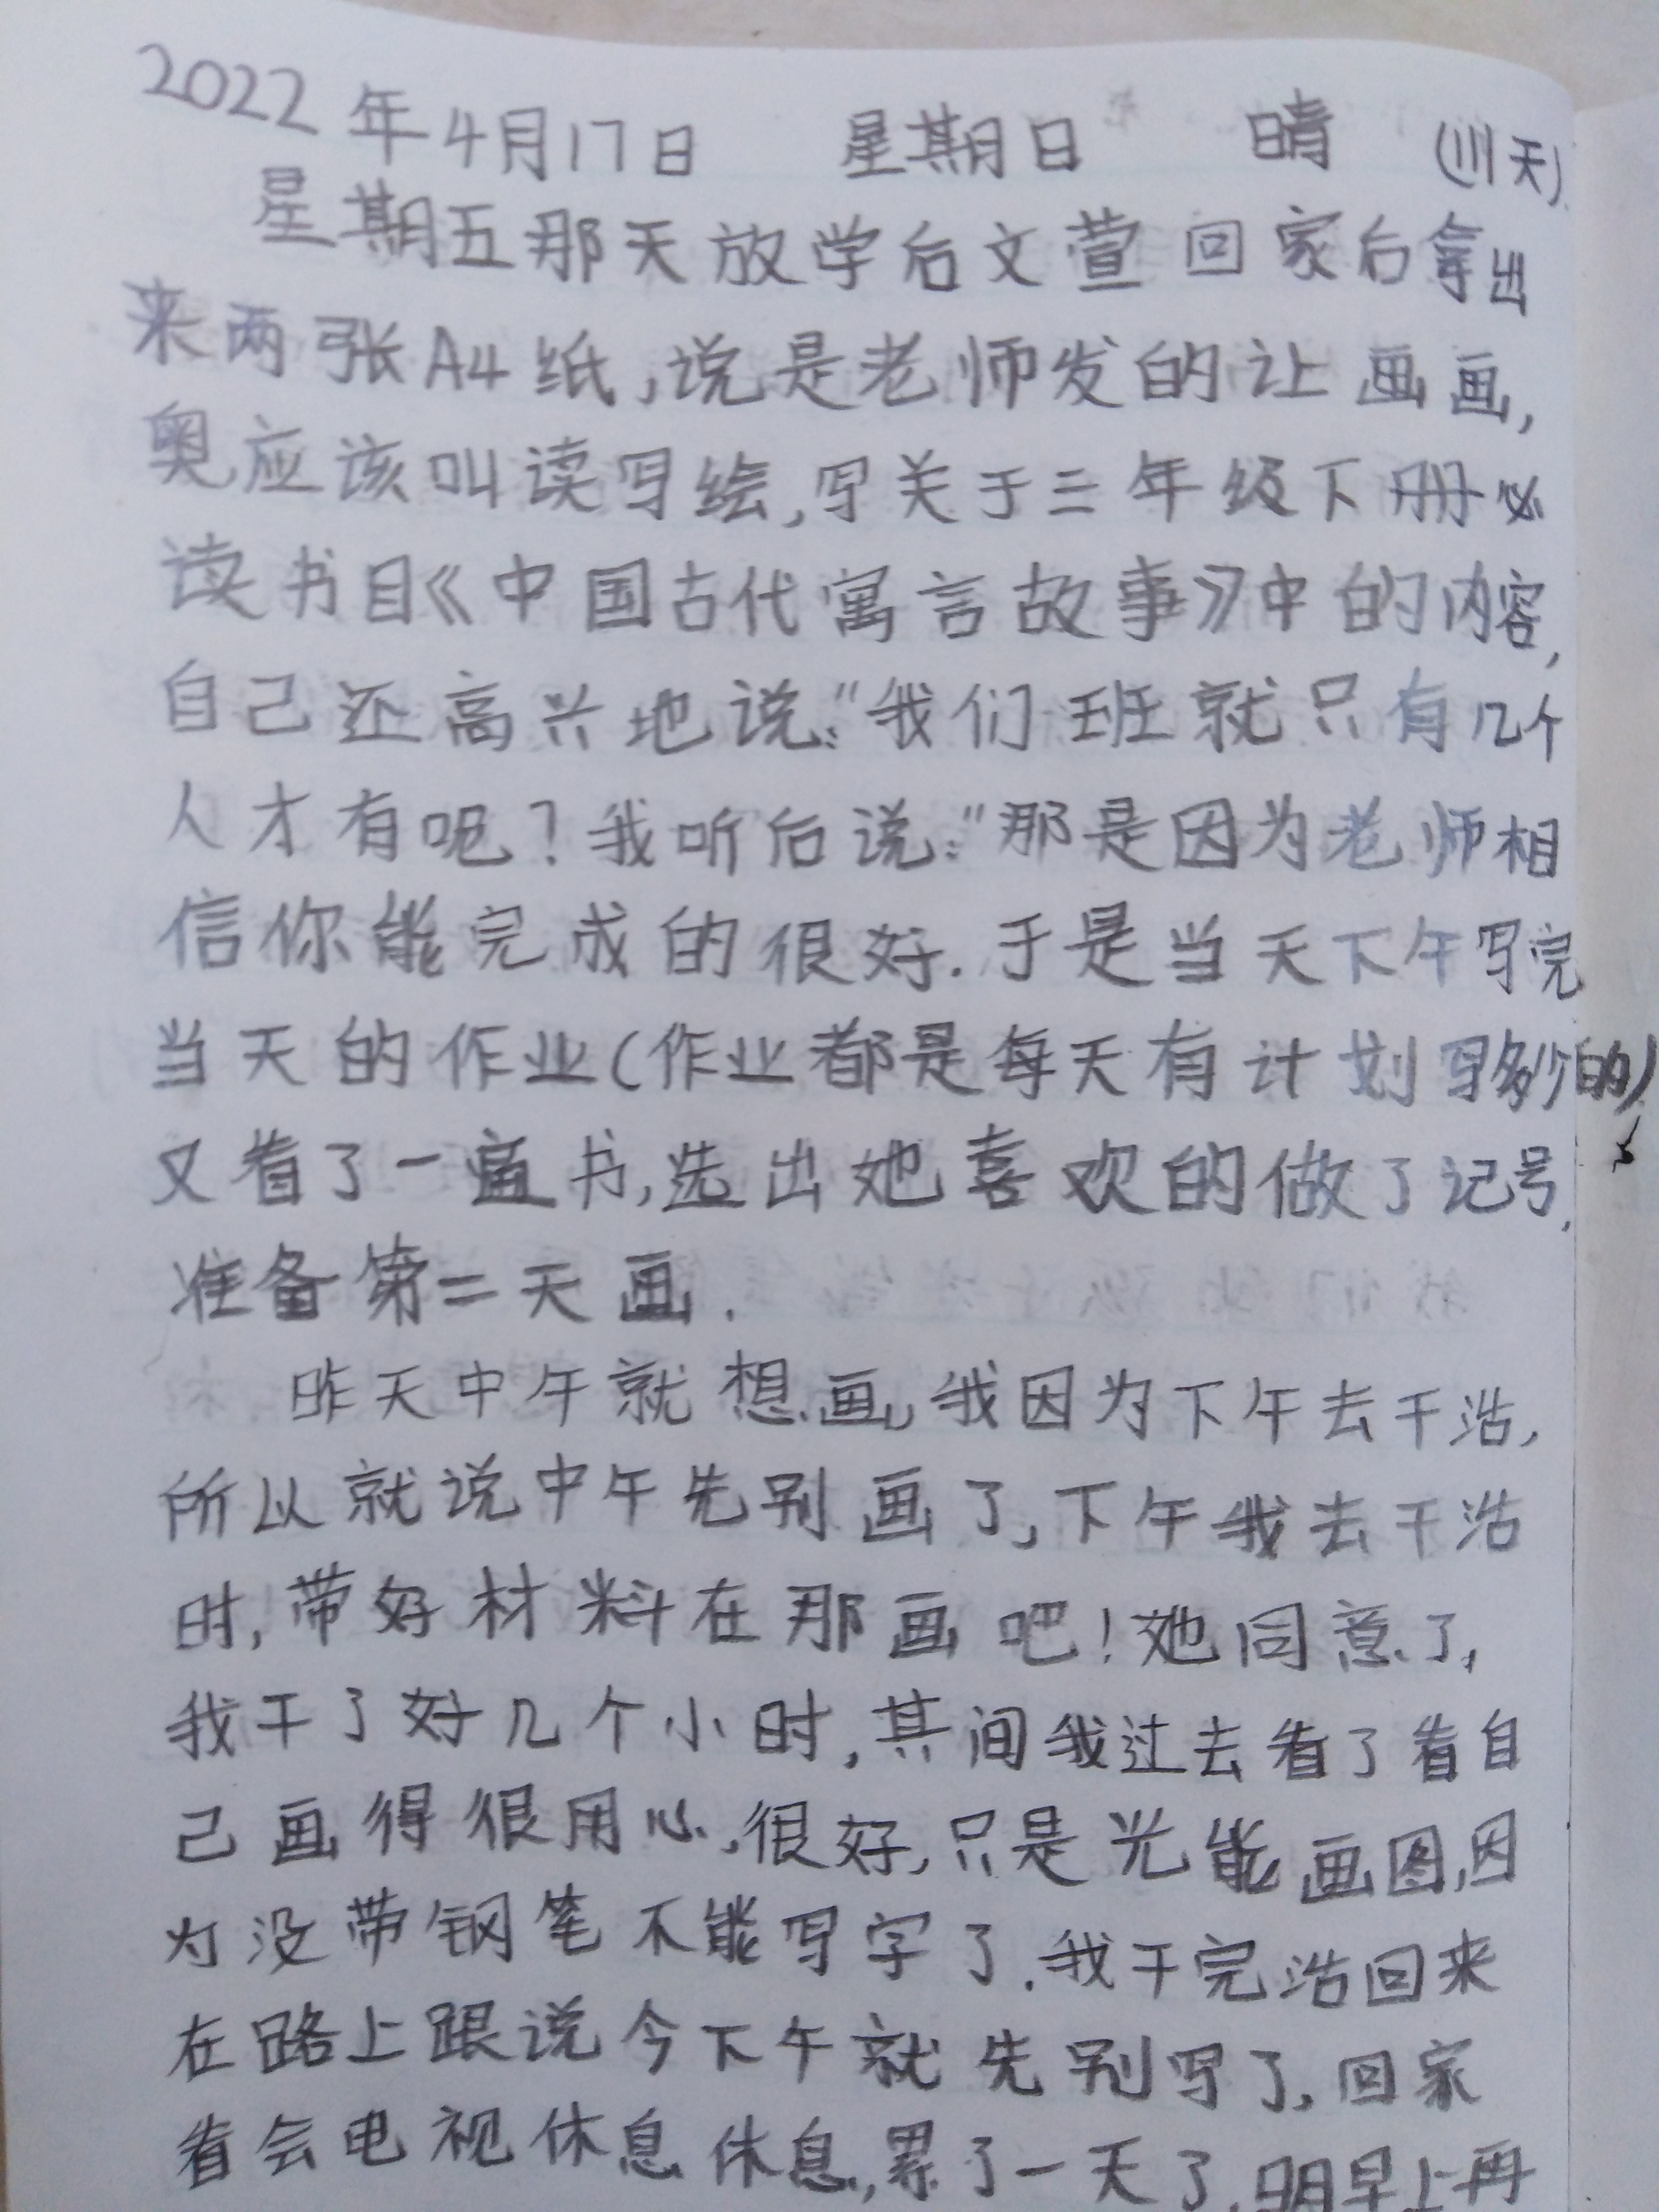 2022年4月17日 星期日 晴 (111天)
星期五那天放学后文萱回家后拿出
来两张A4纸,说是老师发的让画画,
奥应该叫读写绘,写关于三年级下册必
读书目《中国古代寓言故事》中的内容,
自己还高兴地说:"我们班就只有几个
人才有呢?我听后说:"那是因为老师相
信你能完成的很好.于是当天下午写完
当天的作业(作业都是每天有计划写多少的)
又看了一遍书,选出她喜欢的做了记号,
准备第二天画.
昨天中午就想画,我因为下午去干活,
所以就说中午先别画了,下午我去干活
时,带好材料在那画吧!她同意了,
我干了好几个小时,其间我过去看了看自
己画得很用心,很好,只是光能画图,因
为没带钢笔不能写字了.我干完活回来
在路上跟说今下午就先别写了,回家
看会电视休息休息,累了一天了,明早上再